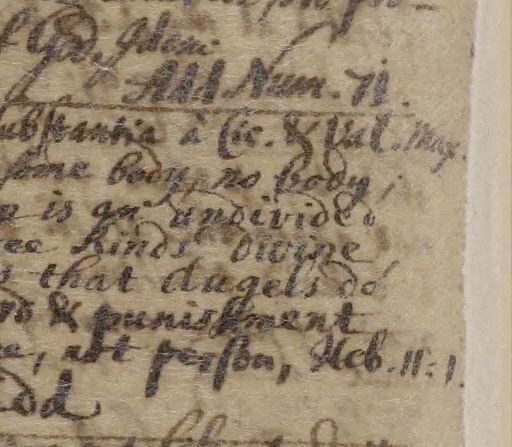 God, Idem.
Att Num. 71.
substantia à Cic. & Val. Max.
some body, no body,
is an undivided
kinds Divine
that Angels do
& punishment
not person, Heb. 11: 1.